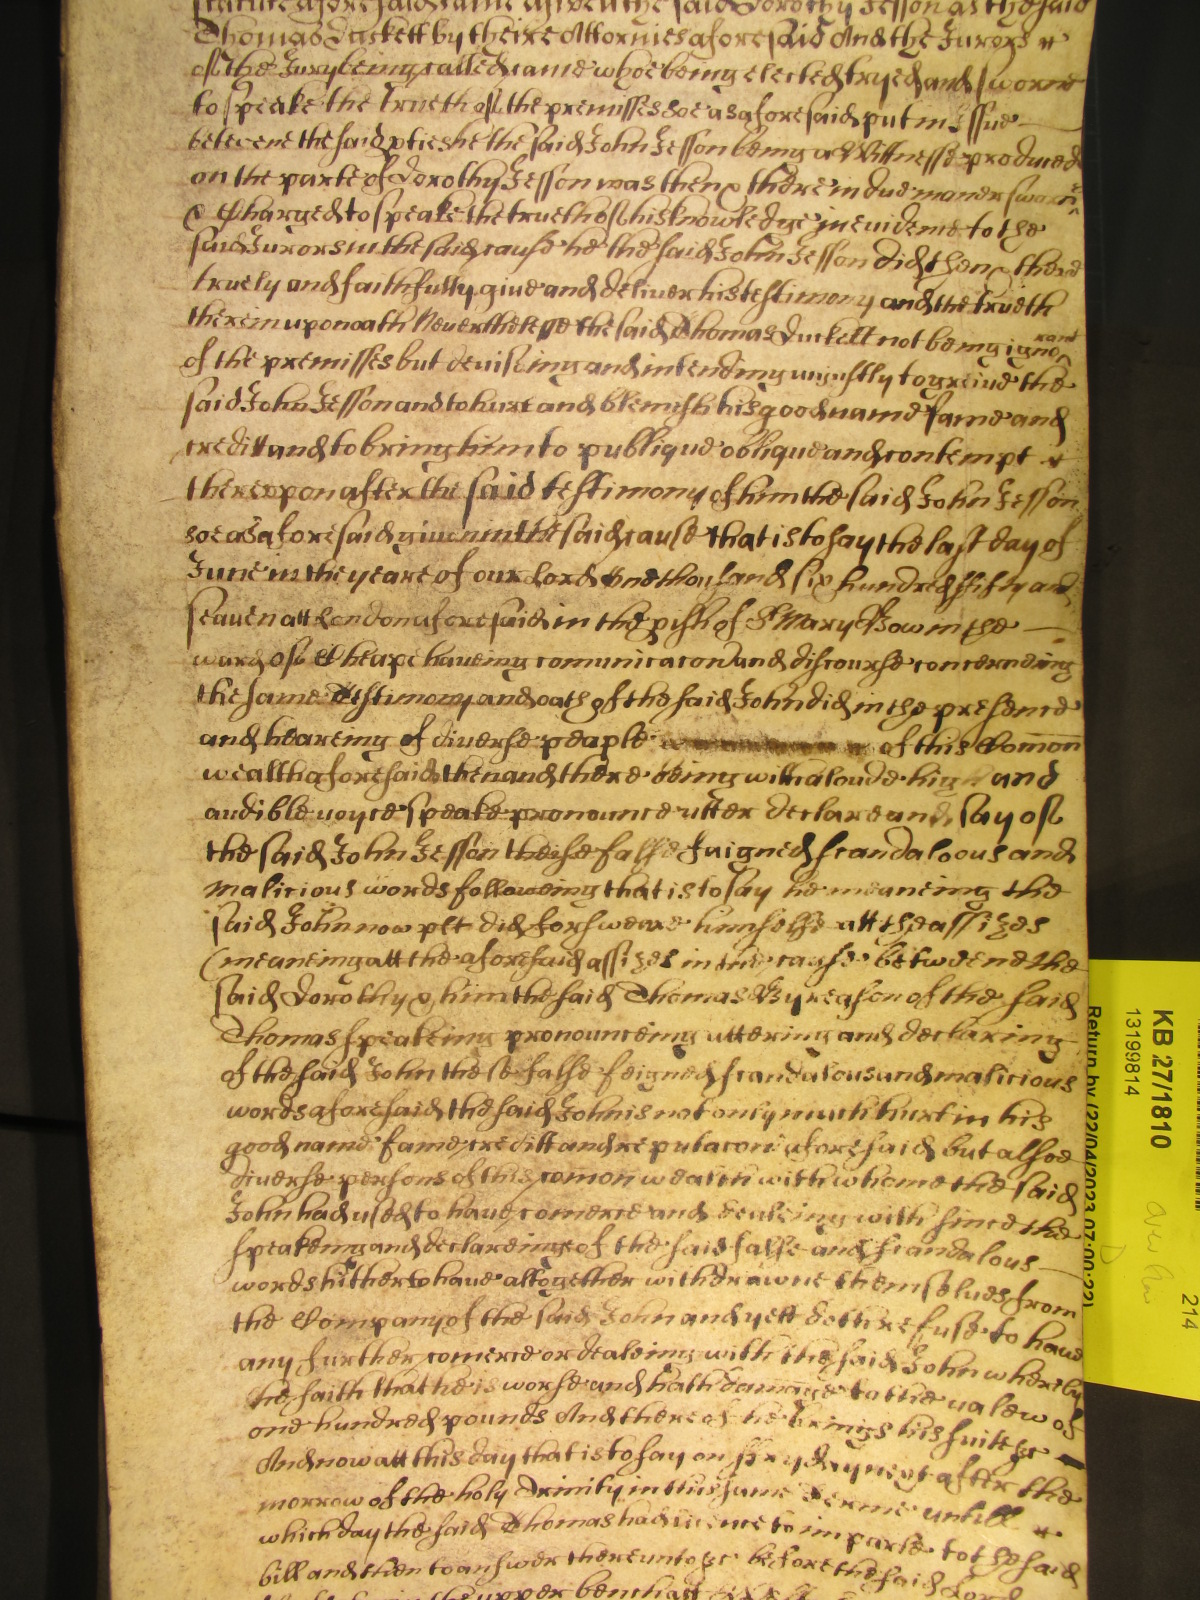 statute aforesaid came aswell the said Dorothy Jesson as the said
Thomas Duckett by theire Attornies aforesaid And the Jurors
of the Jury being called came whoe being elected tryed and sworne
to speake the trueth of the premisses soe as aforesaid put in Issue
betweene the said pties he the said John Jesson being a Wittnesse produced
on the parte of Dorothy Jesson was then & there in due maner sworne
& Charged to speake the trueth of his knowledge in evidence to the
said Jurors in the said cause he the said John Jesson did then & there
truely and faithfully give and deliver his testimony and the trueth
therein upon oath Neverthelesse the said Thomas Duckett not being ignorant
of the premisses but deviseing and intending uniustly to greive the
said John Jesson and to hurt and blemish his good name fame and
creditt and to bring him to publique oblique and contempt
thereupon after the said testimony of him the said John Jesson
soe as aforesaid given in the said cause that is to say the last day of
June in the yeare of our Lord One thousand six hundred fifty and
seaven att London aforesaid in the pish of St Mary Bow in the
ward of Cheape haveing comunicacon and discourse concerneing
the same testimony and oath of the said John did in the presence
and heareing of diverse people of this Comon
wealth aforesaid then and there being with a loude high and
audible voyce speake pronounce utter declare and say of
the said John Jesson theise false faigned scandaloous and
malicious words followeing that is to say he meaneing the
said John now plt did forsweare himselfe att the assizes
(meaneing att the aforesaid assizes in the cause betweene the
said Dorothy & him the said Thomas By reason of the said
Thomas speakeing pronounceing uttering and declaring
of the said John these false feigned scandalous and malicious
words aforesaid the said John is not only much hurt in his
good name fame creditt and reputacon aforesaid but alsoe
diverse persons of this comon wealth with whome the said
John had used to have comerce and dealeing with since the
speakeing and declareinge of the said false and scandalous
words hitherto have altogether withdrawne themselves from
the Company of the said John and yett doe refuse to have
any further comerce or dealeing with the said John whereby
he saith that he is worse and hath damage to the valew of
one hundred pounds And thereof he brings his suite &c
And now att this day that is to say on fryday next after the
morrow of the holy Trinity in this same Terme untill
which day the said Thomas had licence to imparle to the said
bill and then to answer thereunto &c before the said Lord
upper bench att
KB 27/1810
13199814
Return by (22/04/2023 07:00:22)
214